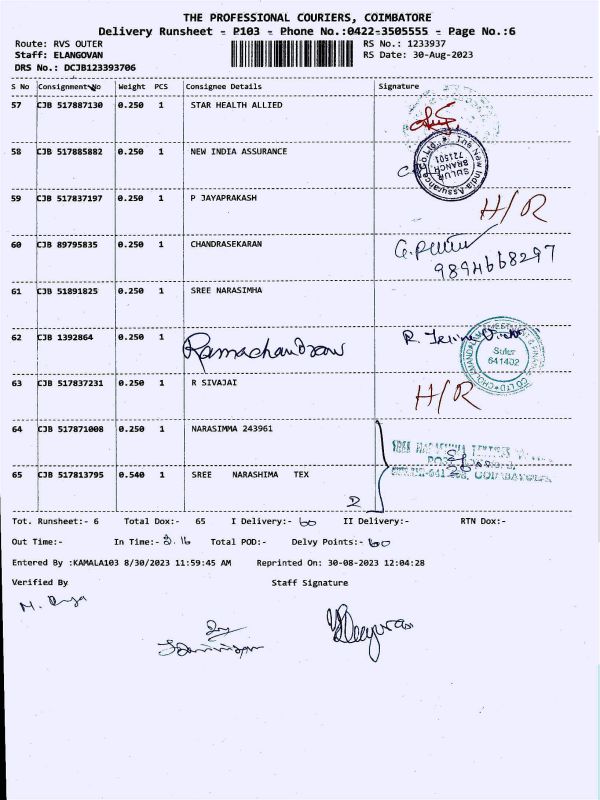 THE PROFESSIONAL COURIERS, COIMBATORE
Delivery Runsheet - P103 - Phone No.:0422-3505555 - Page No.:6
Route: RVS OUTER RS No.: 1233937
Staff: ELANGOVAN RS Date: 30-Aug-2023
DRS No.: DCJB123393706
S No Consignment No Weight PCS Consignee Details Signature
57 CJB 517887130 0.250 1 STAR HEALTH ALLIED
58 CJB 517885882 0.250 1 NEW INDIA ASSURANCE
The New India Assurance Co. Ltd.
SULUR
BRANCH
721501
59 CJB 517837197 0.250 1 P JAYAPRAKASH H/R
60 CJB 89795835 0.250 1 CHANDRASEKARAN
9894668297
61 CJB 51891825 0.250 1 SREE NARASIMHA
62 CJB 1392864 0.250 1 Ramachandran
Sulur
641402
63 CJB 517837231 0.250 1 R SIVAJAI H/R
64 CJB 517871008 0.250 1 NARASIMMA 243961
65 CJB 517813795 0.540 1 SREE NARASHIMA TEX
2
Tot. Runsheet:- 6 Total Dox:- 65 I Delivery:- 60 II Delivery:- RTN Dox:-
Out Time:- In Time:- 2.16 Total POD:- Delvy Points:- 60
Entered By :KAMALA103 8/30/2023 11:59:45 AM Reprinted On: 30-08-2023 12:04:28
Verified By Staff Signature